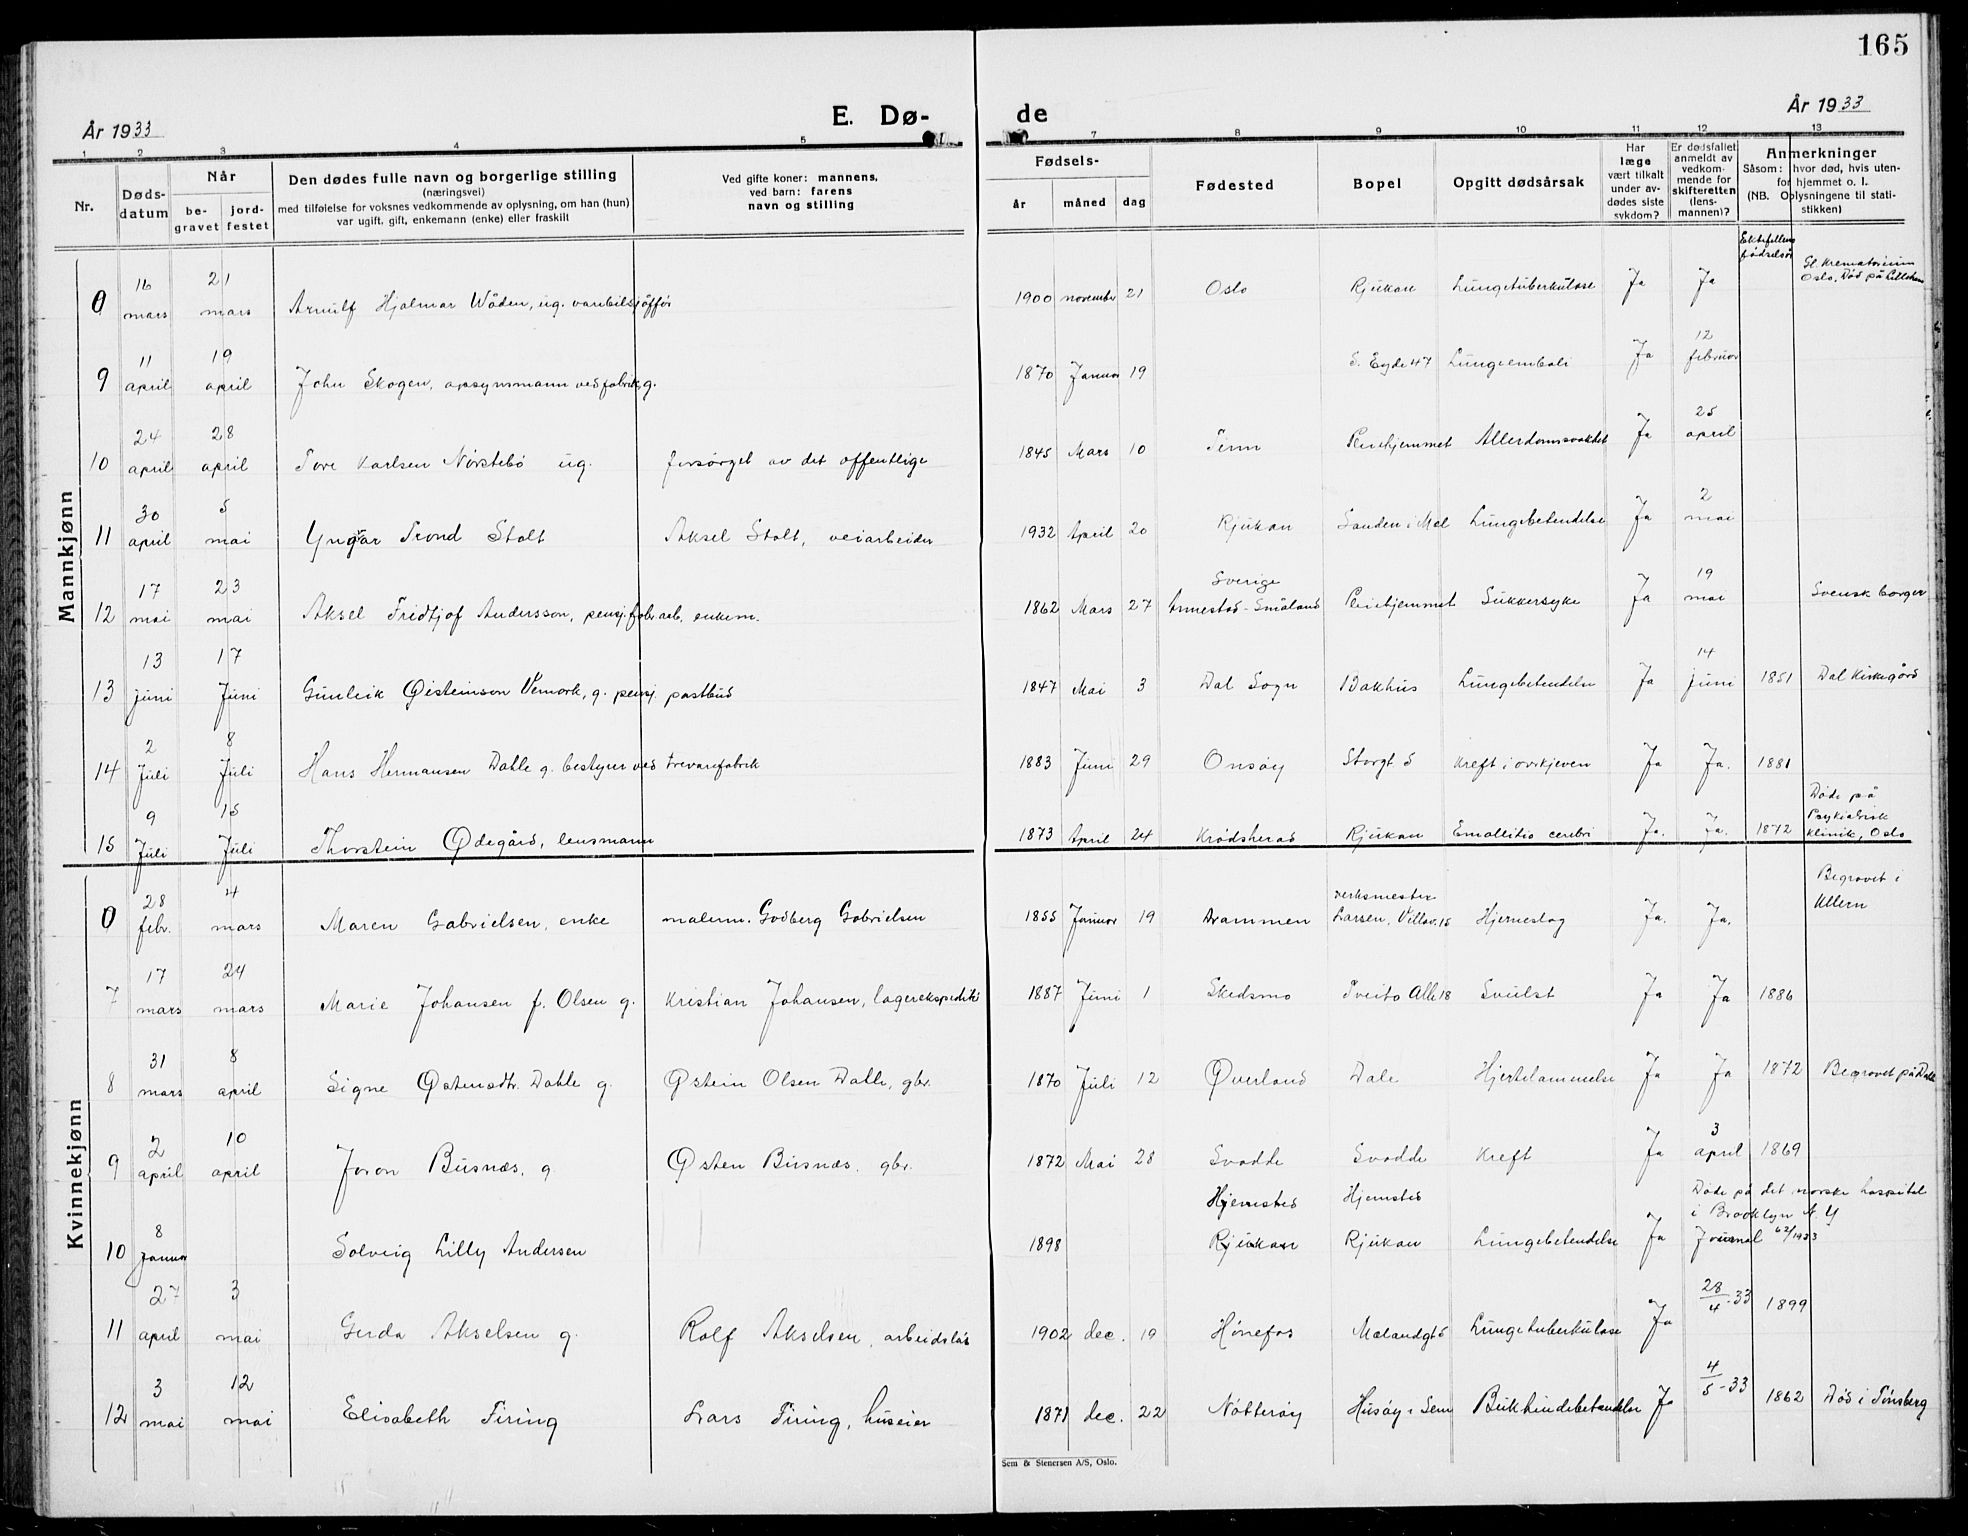 165
År 1933
E. Dø-
de
År 1933
1 2 3 4 5 7 8 9 10 11 12 13
Nr.
Døds-
datum
Når
be-
gravet
jord-
festet
Den dødes fulle navn og borgerlige stilling
(næringsvei)
med tilføielse for voksnes vedkommende av oplysning, om han (hun)
var ugift, gift, enkemann (enke) eller fraskilt
Ved gifte koner: mannens,
ved barn: farens
navn og stilling
Fødsels-
år måned dag
Fødested
Bopel
Opgitt dødsårsak
Har
læge
vært tilkalt
under av-
dødes siste
sykdom?
Er dødsfallet
anmeldt av
vedkom-
mende for
skifteretten
(lens-
mannen)?
Anmerkninger
Såsom: hvor død, hvis uten-
for hjemmet o. l.
(NB. Oplysningene til stati-
stikken)
Ektefellens
fødselsår
Mannkjønn
0 16 mars 21 mars Arnulf Hjalmar Wåden, ug. varebilsjåffør 1900 november 21 Oslo Rjukan Lungetuberkulose Ja Ja Gl. Krematorium
Oslo. Død på
9 11 april 19 april John Skogen, opsynsmann ved fabrik, g. 1870 Januar 19 S. Eyde 47 Lungeemboli Ja 12 februar
10 24 april 28 april Tore Karlsen Nørstebö ug. forsörget av det offentlige 1845 Mars 10 Tinn Pleiehjemmet Alderdomssvakhet Ja 25 april
11 30 april 5 mai Yngvar Trond Stolt Aksel Stolt, veiarbeider 1932 April 20 Rjukan Sanden i Mæl Lungebetendelse Ja 2 mai
12 17 mai 23 mai Aksel Fridtjof Andersson, pensj. fabr.arb. enkem. 1862 Mars 27 Sverige
Annestad-Småland Pleiehjemmet Sukkersyke Ja 19 mai Svensk borger
13 13 juni 17 Juni Gunleik Øisteinson Vemork, g. pensj. postbud 1847 Mai 3 Dal Sogn Bakhus Lungebetendelse Ja 14 juni 1851 Dal Kirkegård
14 2 Juli 8 Juli Hans Hermansen Dahle g. bestyrer ved trevarefabrik 1883 Juni 29 Onsøy Storgt. 5 Kreft i Ja Ja. 1881
15 9 Juli 15 Juli Thorstein Ødegård, lensmann 1873 April 24 Krødsherad Rjukan Emollitio cerebri Ja. Ja. 1872 Døde på
Psykiatrisk
klinik, Oslo
Kvinnekjønn
0 28 febr. 4 mars Maren Gabrielsen, enke malerm. Godberg Gabrielsen 1855 Januar 19 Drammen verksmester
Larsen, Villav. 15 Hjerneslag Ja. Ja. Begravet i
Ullern
7 17 mars 24 mars Marie Johansen f. Olsen g. Kristian Johansen, lagerekspeditör 1887 Juni 1 Skedsmo Tveito Allé 18 Svulst Ja Ja 1886
8 31 mars 8 april Signe Østensdtr. Dahle g. Østein Olsen Dahle, gbr. 1870 Juli 12 Øverland Dale Hjertelammelse Ja Ja 1872 Begravet på Dale
9 2 april 10 april Joron Busnæs, g. Østen Busnæs, gbr. 1872 Mai 28 Svadde Svadde Kreft Ja 3 april 1869
10 8 Januar Solveig Lilly Andersen 1898 Hjemsted
Rjukan Hjemsted
Rjukan Lungebetendelse Ja Døde på det norske hospital
i Brooklyn N. Y
Journal 62/1933
11 27 april 3 mai Gerda Akselsen g. Rolf Akselsen, arbeidsløs 1902 dec. 19 Hönefos Mælandgt 5 Lungetuberkulose Ja 28/4-33 1899
12 3 mai 12 mai Elisabeth Firing Lars Firing, huseier 1871 dec. 22 Nötteröy Husöy i Sem Bukhindebetendelse Ja 4/5-33 1862 Död i Tönsberg
Sem & Stenersen A/S, Oslo.